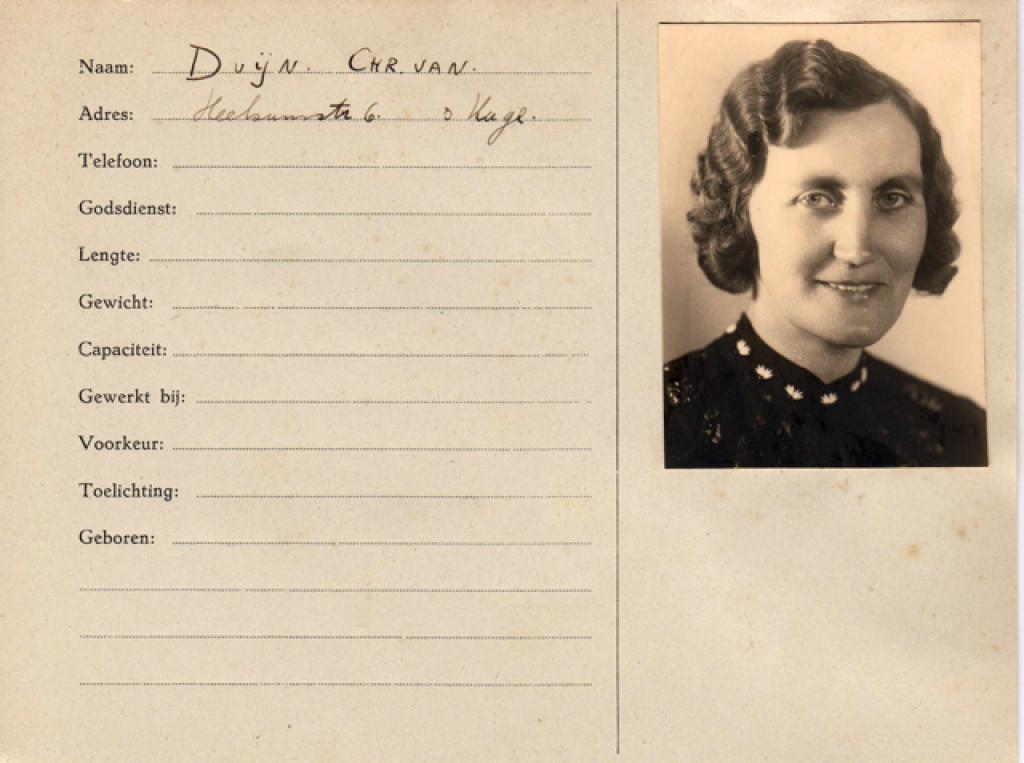 Naam: DUIJN. CHR. VAN.
Adres: Heelsumstr 6. s Hage.
Telefoon:
Godsdienst:
Lengte:
Gewicht:
Capaciteit:
Gewerkt bij:
Voorkeur:
Toelichting:
Geboren: